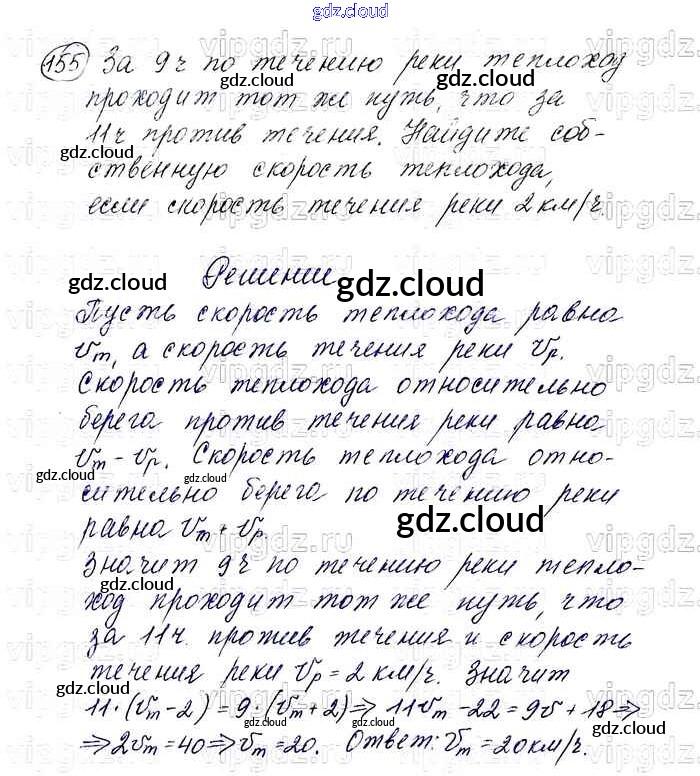 gdz.cloud
155 За 9ч по течению реки теплоход
проходит тот же путь, что за
11ч против течения. Найдите соб-
ственную скорость теплохода,
если скорость течения реки 2 км/ч.
Решение
Пусть скорость теплохода равна
Vт, а скорость течения реки Vр.
Скорость теплохода относительно
берега против течения реки равна
Vт - Vр. Скорость теплохода отно-
сительно берега по течению реки
равна Vт + Vр.
Значит 9ч по течению реки тепло-
ход проходит тот же путь, что
за 11ч. против течения и скорость
течения реки Vр = 2 км/ч. Значит
11·(Vт-2)=9·(Vт+2)⇒11Vт-22=9V+18⇒
⇒2Vт=40⇒Vт=20. Ответ: Vт=20км/ч.